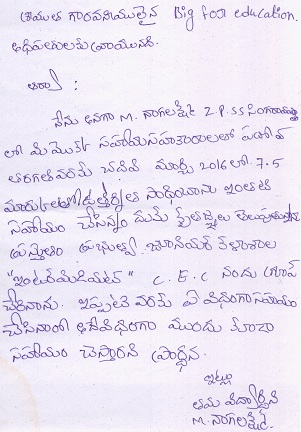 శ్రీమతి గౌరవనీయులైన Big foot education
అధిపతులకు వ్రాయునది.
ఆర్యా :
నేను అనగా M. నాగలక్ష్మి Z.P.SS
లో మీ యొక్క సహాయసహకారాలతో పదోవ
తరగతి వరకు చదివి మార్చి 2016 లో. 7.5
మార్కులతో ఉత్తీర్ణత సాధించాను ఇంతటి
సహాయం చేసినందుకు కృతజ్ఞతలు తెలుపుతున్నాను
ప్రస్తుతం ప్రభుత్వ జూనియర్ కళాశాల
"ఇంటర్మీడియట్" C.E.C నందు గ్రూప్
చేరినాను. ఇప్పటి వరకు ఏ విధంగా సహాయం
చేసినారో అదేవిధంగా ముందు కూడా
సహాయం చేస్తారని ప్రార్థన.
ఇట్లు
తమ విద్యార్థిని
M. నాగలక్ష్మి.